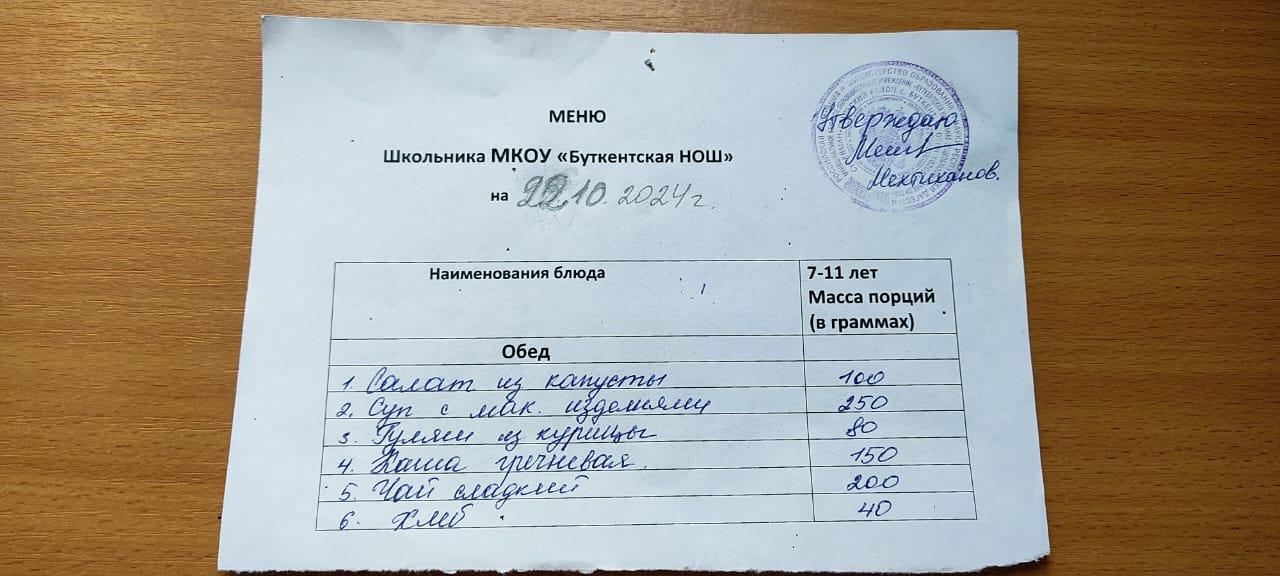 МЕНЮ
Школьника МКОУ «Буткентская НОШ»
на 22.10.2024г.
Утверждаю
Мехтиханов.
Наименования блюда
7-11 лет
Масса порций
(в граммах)
Обед
1. Салат из капусты 100
2. Суп с мак. изделиями 250
3. Гуляш из курицы 80
4. Каша гречневая. 150
5. Чай сладкий 200
6. Хлеб 40